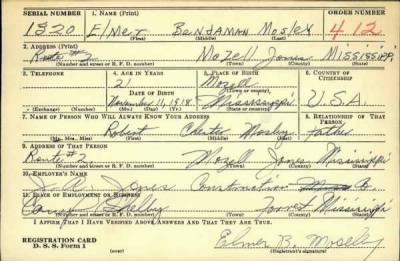 SERIAL NUMBER 1. Name (Print) ORDER NUMBER
1520 Elmer Benjaman Mosley 412
(First) (Middle) (Last)
2. Address (Print)
Route #2 Mozell Jones Mississippi
(Number and street or R. F. D. number) (Town) (County) (State)
3. Telephone 4. Age in Years 5. Place of Birth 6. Country of Citizenship
21 Mozell
(Town or county)
Date of Birth
November 11, 1918 Mississippi U.S.A.
(Exchange) (Number) (Mo.) (Day) (Yr.) (State or country)
7. Name of Person Who Will Always Know Your Address 8. Relationship of That Person
Robert Chester Mosley Father
(Mr., Mrs., Miss) (First) (Middle) (Last)
9. Address of That Person
Route #2 Mozell Jones Mississippi
(Number and street or R. F. D. number) (Town) (County) (State)
10. Employer's Name
J. A. Jones Construction Co
11. Place of Employment or Business
Camp Shelby Forrest Mississippi
(Number and street or R. F. D. number) (Town) (County) (State)
I Affirm That I Have Verified Above Answers and That They Are True.
REGISTRATION CARD
D. S. S. Form 1 (over) Elmer B. Moselby
(Registrant's signature)